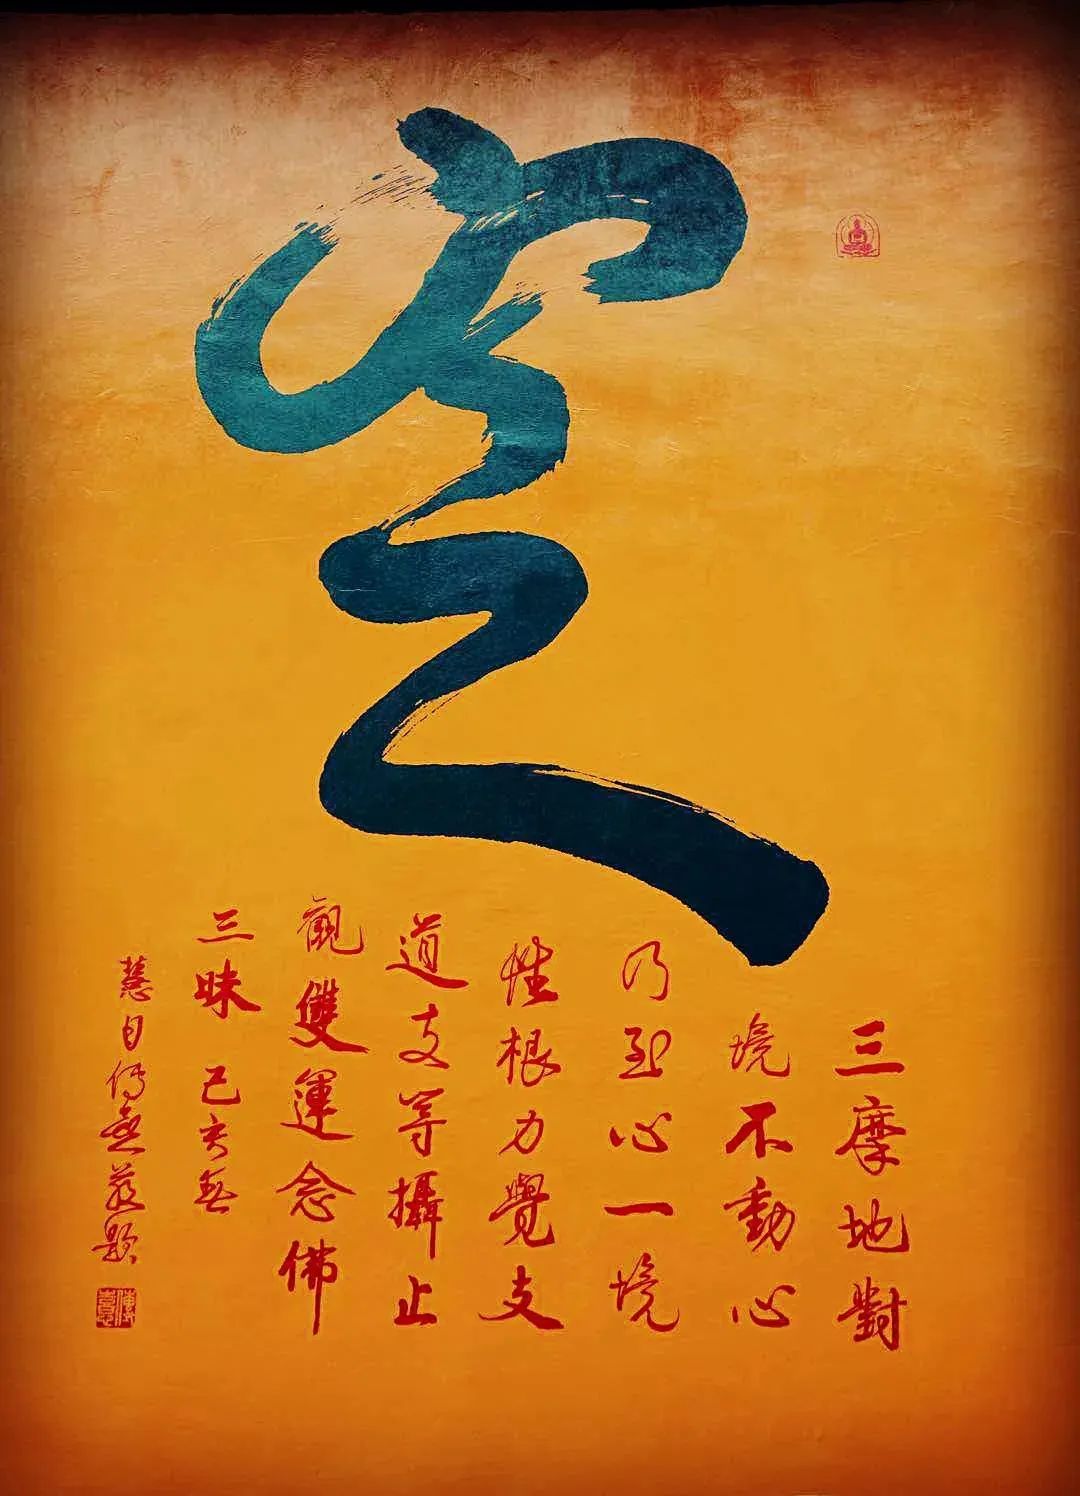 三摩地對
境不動心
乃至心一境
性根力覺支
道支等攝止
觀雙運念佛
三昧 己亥
慧日傳喜題
傳喜